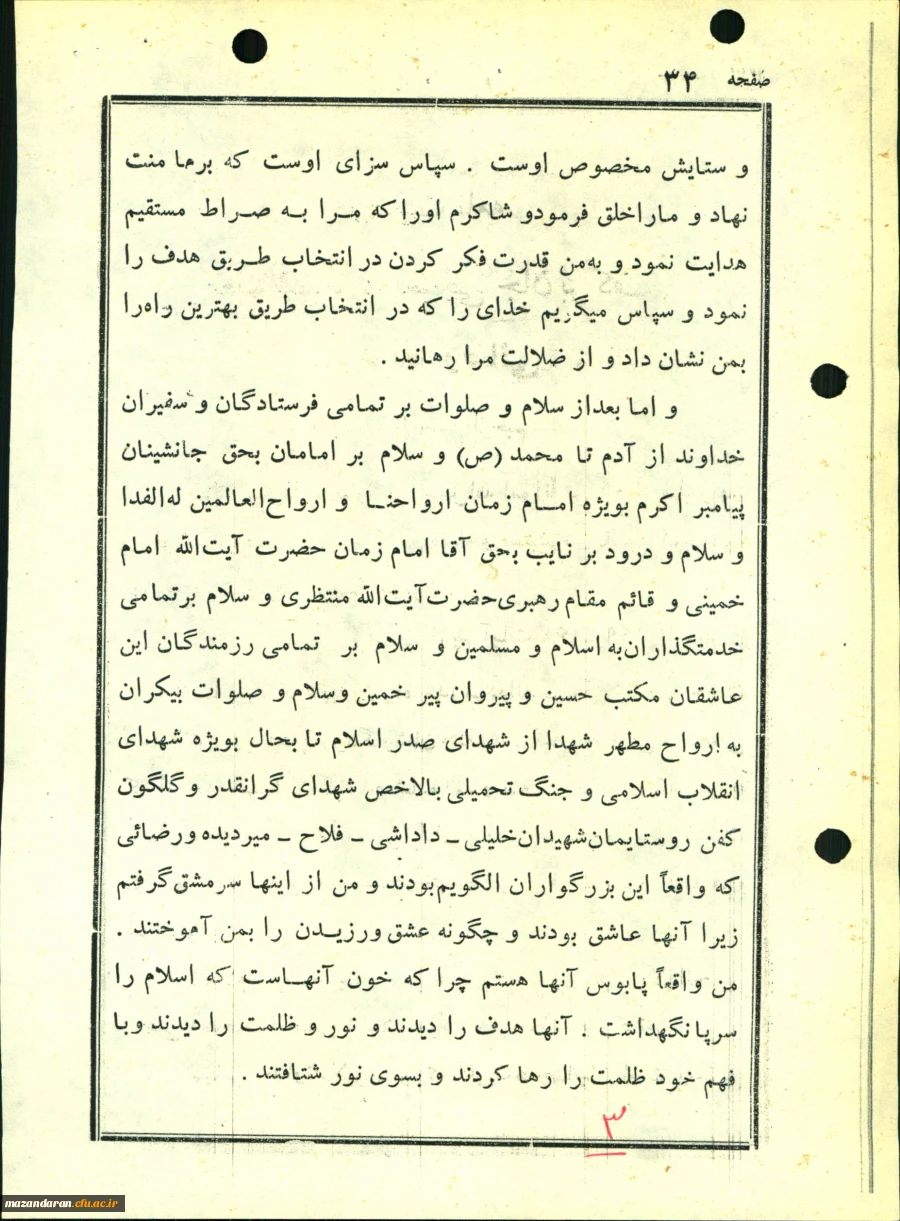 صفحه ۳۴
و ستایش مخصوص اوست . سپاس سزای اوست که برما منت
نهاد و ماراخلق فرمودو شاکرم اوراکه مرا به صراط مستقیم
هدایت نمود و به‌من قدرت فکر کردن در انتخاب طریق هدف را
نمود و سپاس میگزیم خدای را که در انتخاب طریق بهترین راه‌را
بمن نشان داد و از ضلالت مرا رهانید .
و اما بعداز سلام و صلوات بر تمامی فرستادگان و سفیران
خداوند از آدم تا محمد (ص) و سلام بر امامان بحق جانشینان
پیامبر اکرم بویژه امام زمان ارواحنا و ارواح‌العالمین له‌الفدا
و سلام و درود بر نایب بحق آقا امام زمان حضرت آیت‌الله امام
خمینی و قائم مقام رهبری‌حضرت‌آیت‌الله منتظری و سلام برتمامی
خدمتگذاران‌به اسلام و مسلمین و سلام بر تمامی رزمندگان این
عاشقان مکتب حسین و پیروان پیر خمین وسلام و صلوات بیکران
به ارواح مطهر شهدا از شهدای صدر اسلام تا بحال بویژه شهدای
انقلاب اسلامی و جنگ تحمیلی بالاخص شهدای گرانقدر و گلگون
کفن روستایمان‌شهیدان‌خلیلی – داداشی – فلاح – میردیده ورضائی
که واقعاً این بزرگواران الگویم‌بودند و من از اینها سرمشق‌گرفتم
زیرا آنها عاشق بودند و چگونه عشق‌ورزیدن را بمن آموختند .
من واقعاً پابوس آنها هستم چرا که خون آنهاست که اسلام را
سرپانگهداشت . آنها هدف را دیدند و نور و ظلمت را دیدند وبا
فهم خود ظلمت را رها کردند و بسوی نور شتافتند .
۳
mazandaran.cfu.ac.ir